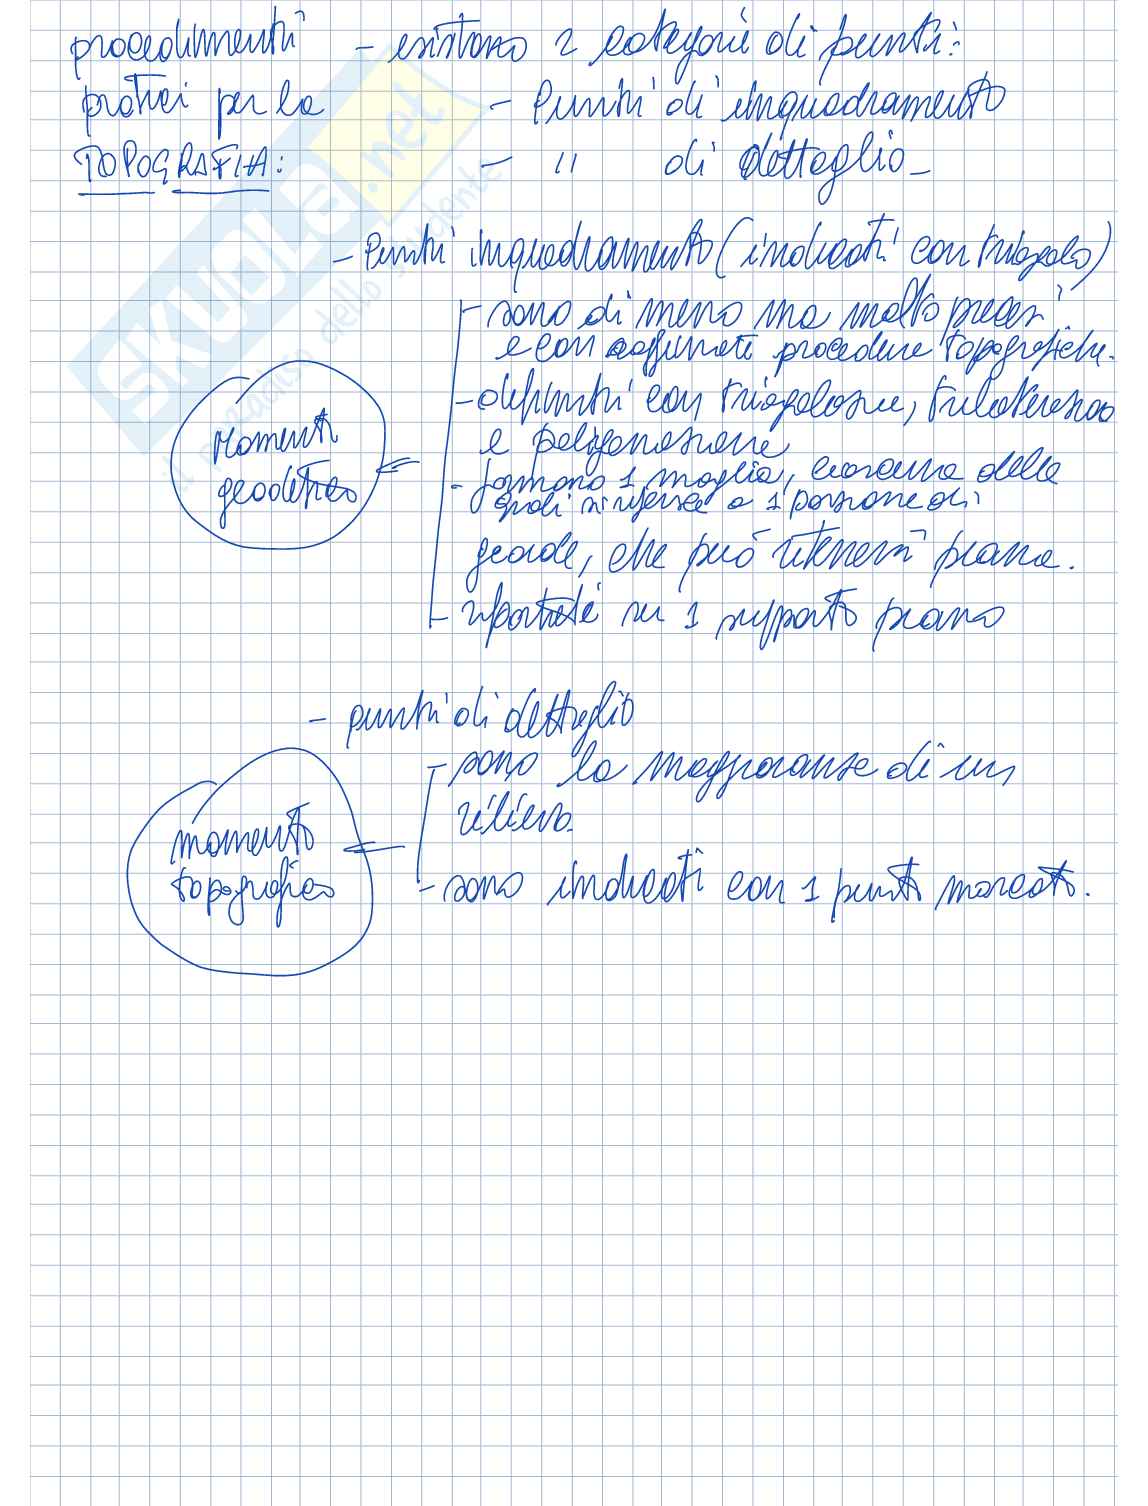 procedimenti - esistono 2 categorie di punti:
pratici per la - Punti di inquadramento
TOPOGRAFIA: - " di dettaglio -
- Punti inquadramento (indicati con triangolo)
- sono di meno ma molto precisi
e con raffinate procedure topografiche.
- definiti con triangolazione, trilaterazione
e poligonazione
- formano 1 maglia, ciascuna delle
quali si riferisce a 1 porzione di
geoide, che può ritenersi piana.
- riportate su 1 supporto piano
momento
geodetico
- punti di dettaglio
- sono la maggioranza di un
rilievo.
- sono indicati con 1 punto marcato.
momento
topografico
SKUOLA.net
il dello studente